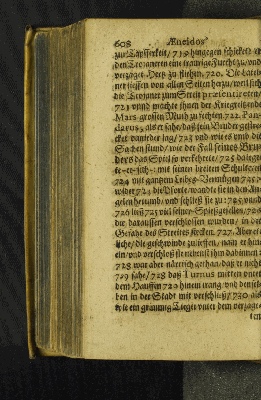 608 Æneidos
zur Tapfferkeit/ 719 hingegen schickete er
den Trojaneren eine traurige Furcht zu/ und
verzaget Hertz zu fliehen. 720. Die Latei-
ner stiessen von allen Seiten herzu/ weil sich
die Trojaner zum Streit præsentireten
721 und machte ihnen der Kriegreitzende
Mars grossen Muth zu fechten. 722. Pan-
darus, als er sahe/ daß sein Bruder gestre-
cket danider lag/ 723 und wie es umb die
Sachen stund/ wie der Fall seines Bru-
ders das Spiel so verkehrete/ 725
mit seinen breiten Schulteren
724 mit gantzem Leibes-Vermögen 725
widder die Pforte wandte sie in den An-
gelen herumb/ und schließ sie zu/ 725 und
726 ließ 725 viel seiner Spießgesellen/ 726
die daraussen verschlossen wurden/ in der
Gefahr des Streites stecken. 727. Aber et-
liche/ die geschwinde zulieffen/ nam er hin-
ein/ und verschloß sie nebenst ihm dahinnen
728 war aber närrisch gethan/ daß er nicht
729 sahe/ 728 daß Turnus mitten unter
dem Hauffen 729 hinein trang/ und densel-
ben in der Stadt mit verschließ/ 730 als
wie ein grausam Tieger unter dem verzage-
ten